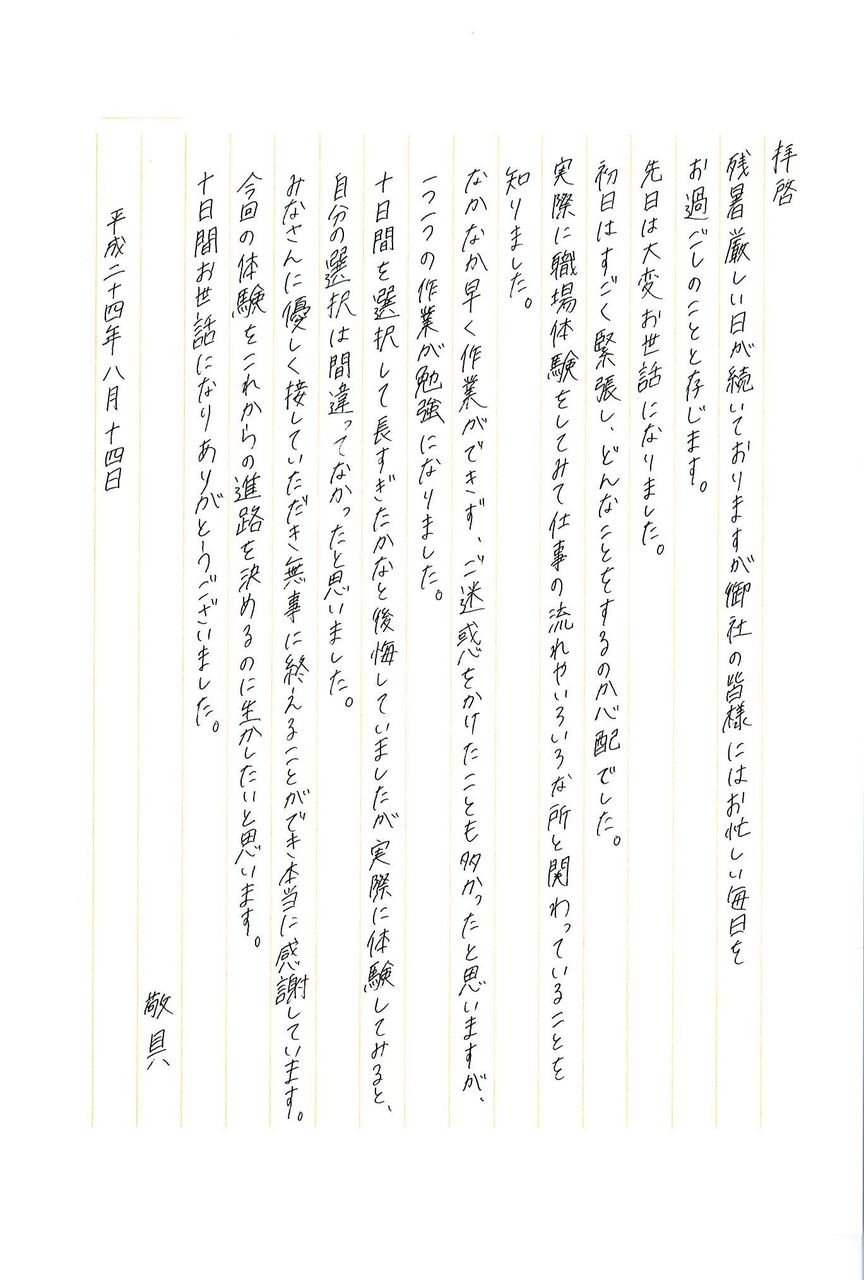 拝啓
残暑厳しい日が続いておりますが御社の皆様にはお忙しい毎日を
お過ごしのことと存じます。
先日は大変お世話になりました。
初日はすごく緊張し、どんなことをするのか心配でした。
実際に職場体験をしてみて仕事の流れやいろいろな所と関わっていることを
知りました。
なかなか早く作業ができず、ご迷惑をかけたことも多かったと思いますが、
一つ一つの作業が勉強になりました。
十日間を選択して長すぎたかなと後悔していましたが実際に体験してみると、
自分の選択は間違ってなかったと思いました。
みなさんに優しく接していただき無事に終えることができ本当に感謝しています。
今回の体験をこれからの進路を決めるのに生かしたいと思います。
十日間お世話になりありがとうございました。
敬具
平成二十四年八月十四日